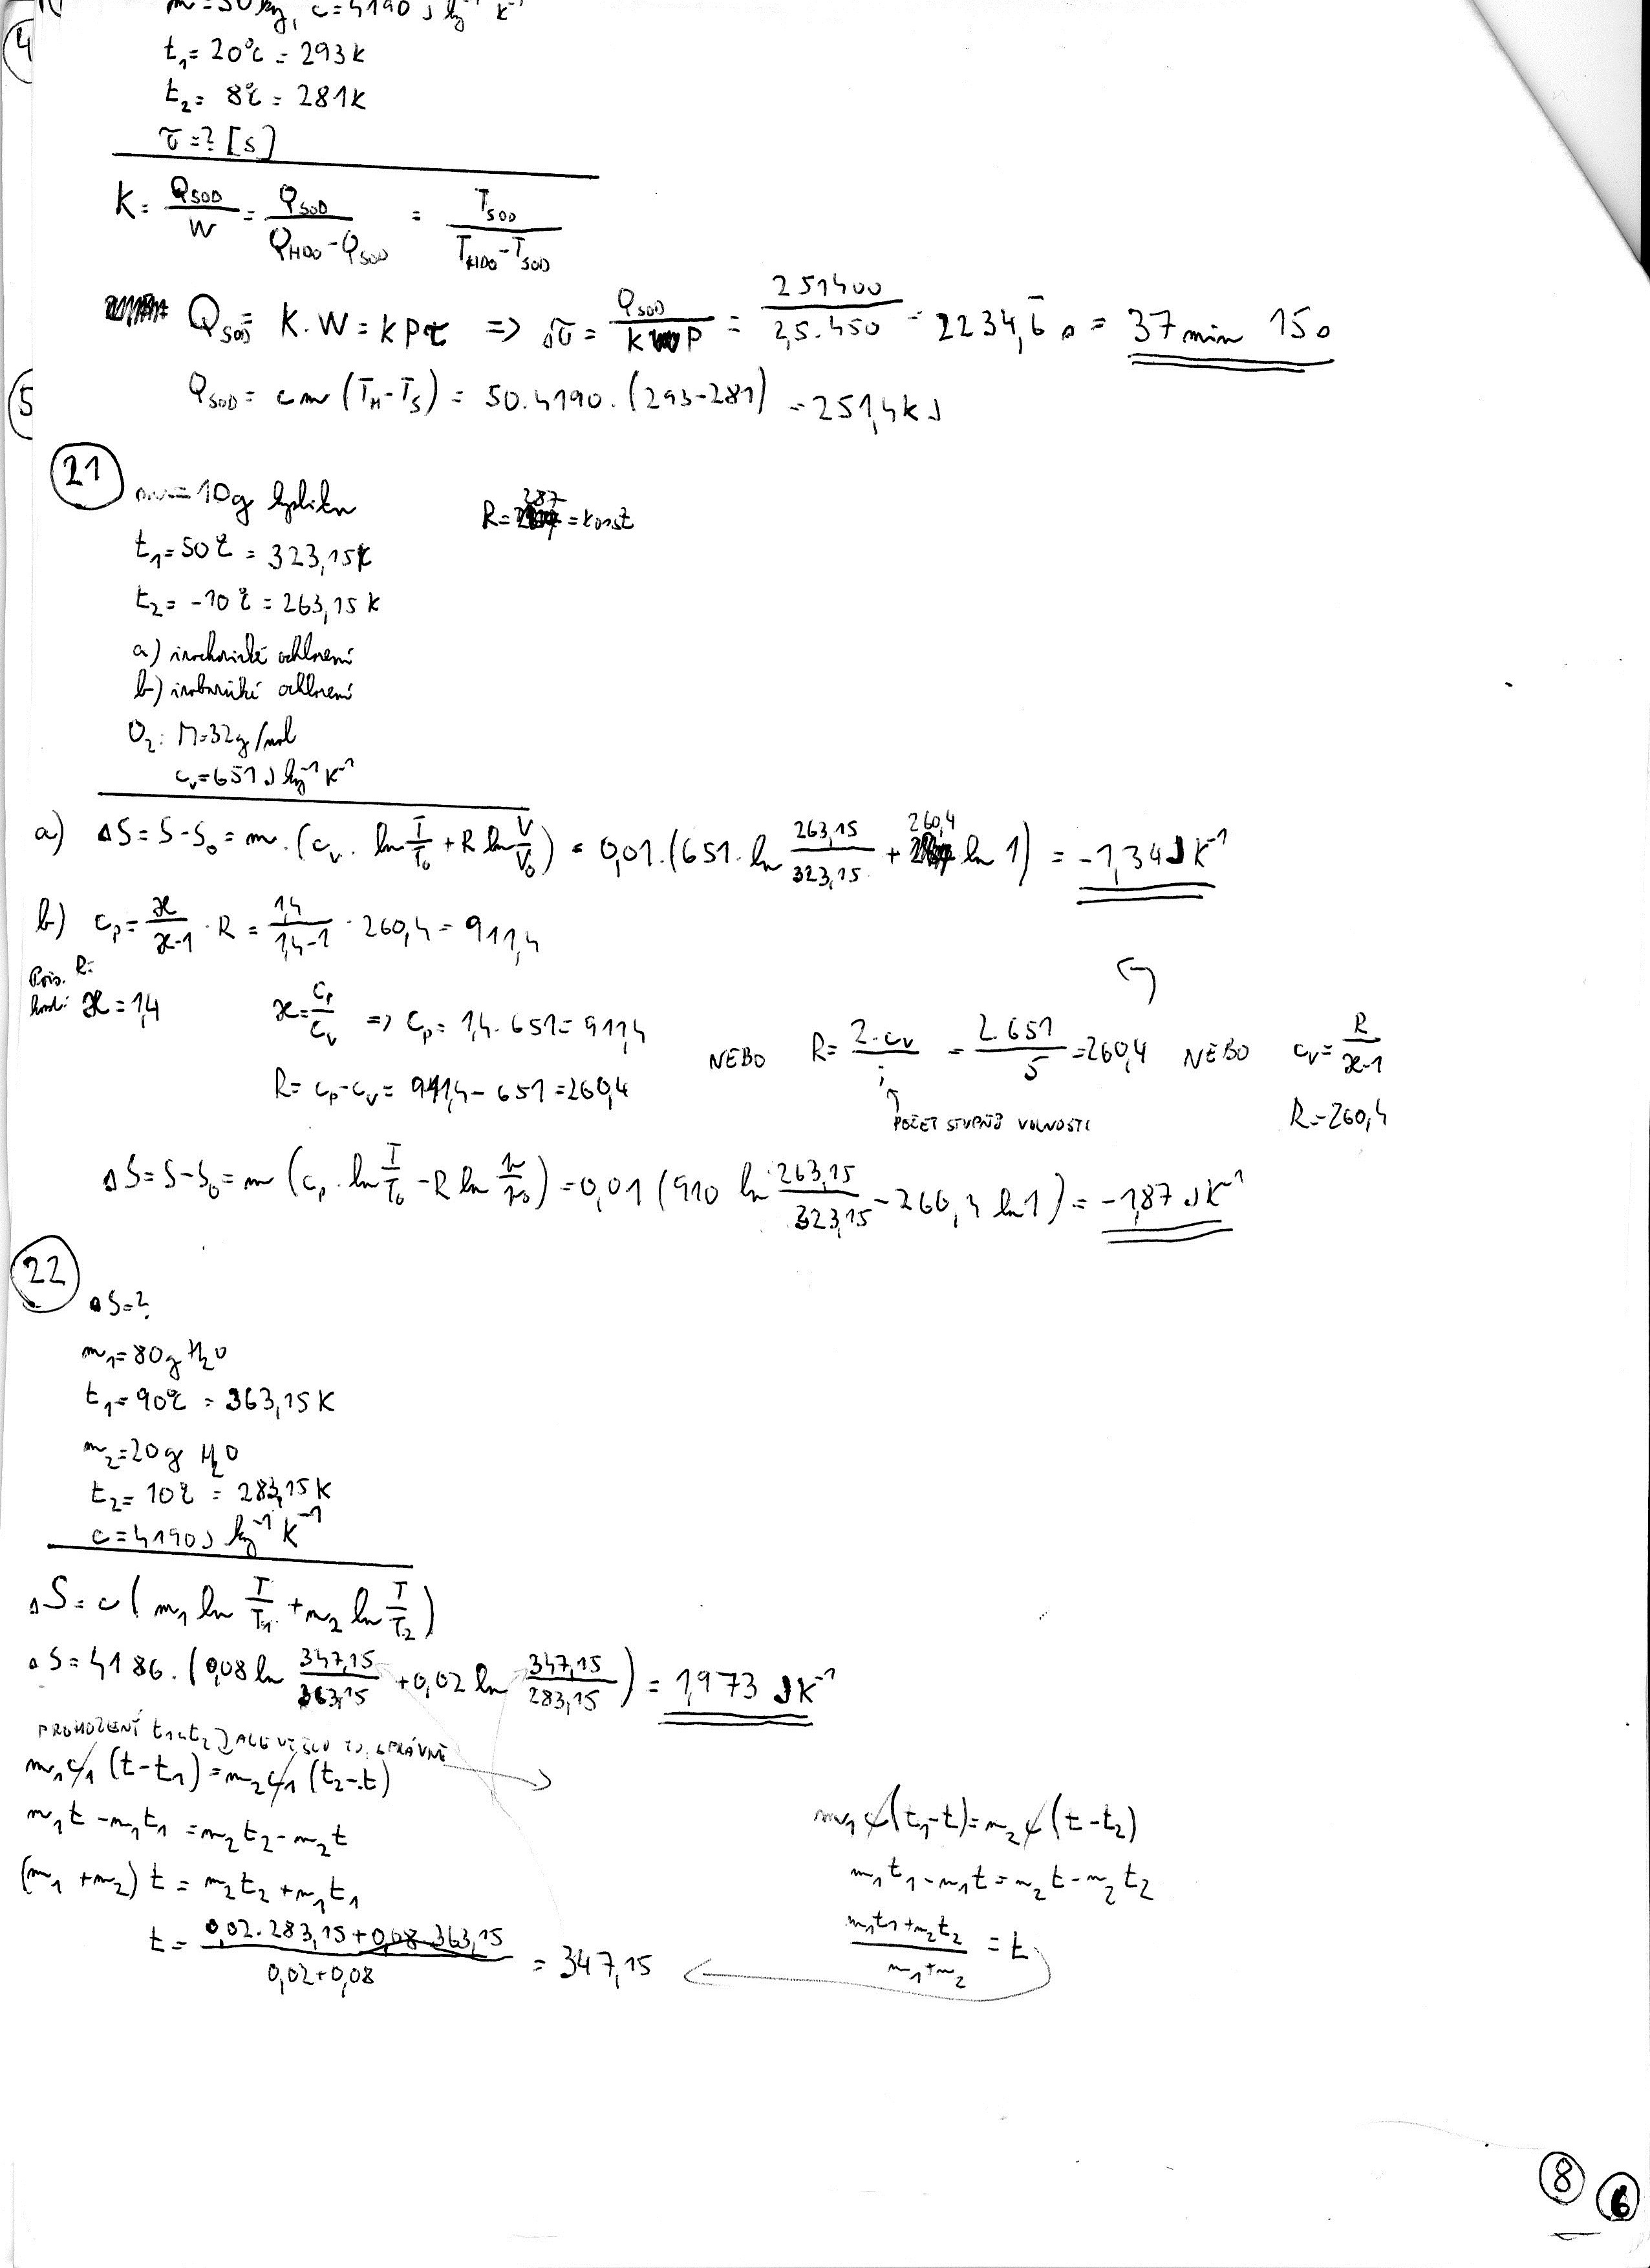 ④
m = 50 kg, c = 4190 J kg⁻¹ K⁻¹
t₁ = 20°C = 293 K
t₂ = 8°C = 281 K
τ = ? [s]
K = Q_SOD / W = Q_SOD / (Q_HDO - Q_SOD) = T_SOD / (T_HDO - T_SOD)
Q_SOD = K · W = K P τ ⇒ Δτ = Q_SOD / (K P) = 251400 / (2,5 · 450) = 2234,6̄ s = 37 min 15 s
⑤
Q_SOD = cm (T_H - T_S) = 50 · 4190 · (293 - 281) = 251,4 kJ
㉑
m = 10g kyslíku
R = 287 = konst
t₁ = 50°C = 323,15 K
t₂ = -10°C = 263,15 K
a) izochorické ochlazení
b) izobarické ochlazení
O₂: M = 32g/mol
c_v = 651 J kg⁻¹ K⁻¹
a) ΔS = S - S₀ = m · (c_v · ln T/T₀ + R ln V/V₀) = 0,01 · (651 · ln 263,15/323,15 + 260,4 ln 1) = -1,34 J K⁻¹
b) c_p = ϰ/(ϰ-1) · R = 1,4/(1,4-1) · 260,4 = 911,4
Pois. R:
ϰ = 1,4
ϰ = c_p/c_v ⇒ c_p = 1,4 · 651 = 911,4
R = c_p - c_v = 911,4 - 651 = 260,4
NEBO R = 2·c_v / i = 2·651 / 5 = 260,4 NEBO c_v = R/(ϰ-1)
POČET STUPŇŮ VOLNOSTI
R = 260,4
ΔS = S - S₀ = m (c_p · ln T/T₀ - R ln p/p₀) = 0,01 (910 ln 263,15/323,15 - 260,4 ln 1) = -1,87 J K⁻¹
㉒
ΔS = ?
m₁ = 80g H₂O
t₁ = 90°C = 363,15 K
m₂ = 20g H₂O
t₂ = 10°C = 283,15 K
c = 4190 J kg⁻¹ K⁻¹
ΔS = c (m₁ ln T/T₁ + m₂ ln T/T₂)
ΔS = 4186 · (0,08 ln 347,15/363,15 + 0,02 ln 347,15/283,15) = 1,973 J K⁻¹
PROHOZENÍ t₁ a t₂ ALE VYŠLO TO SPRÁVNĚ
m₁c₁ (t - t₁) = m₂c₁ (t₂ - t)
m₁t - m₁t₁ = m₂t₂ - m₂t
(m₁ + m₂) t = m₂t₂ + m₁t₁
t = (0,02 · 283,15 + 0,08 · 363,15) / (0,02 + 0,08) = 347,15
m₁c(t₁ - t) = m₂c(t - t₂)
m₁t₁ - m₁t = m₂t - m₂t₂
(m₁t₁ + m₂t₂) / (m₁ + m₂) = t
⑧ ⑥